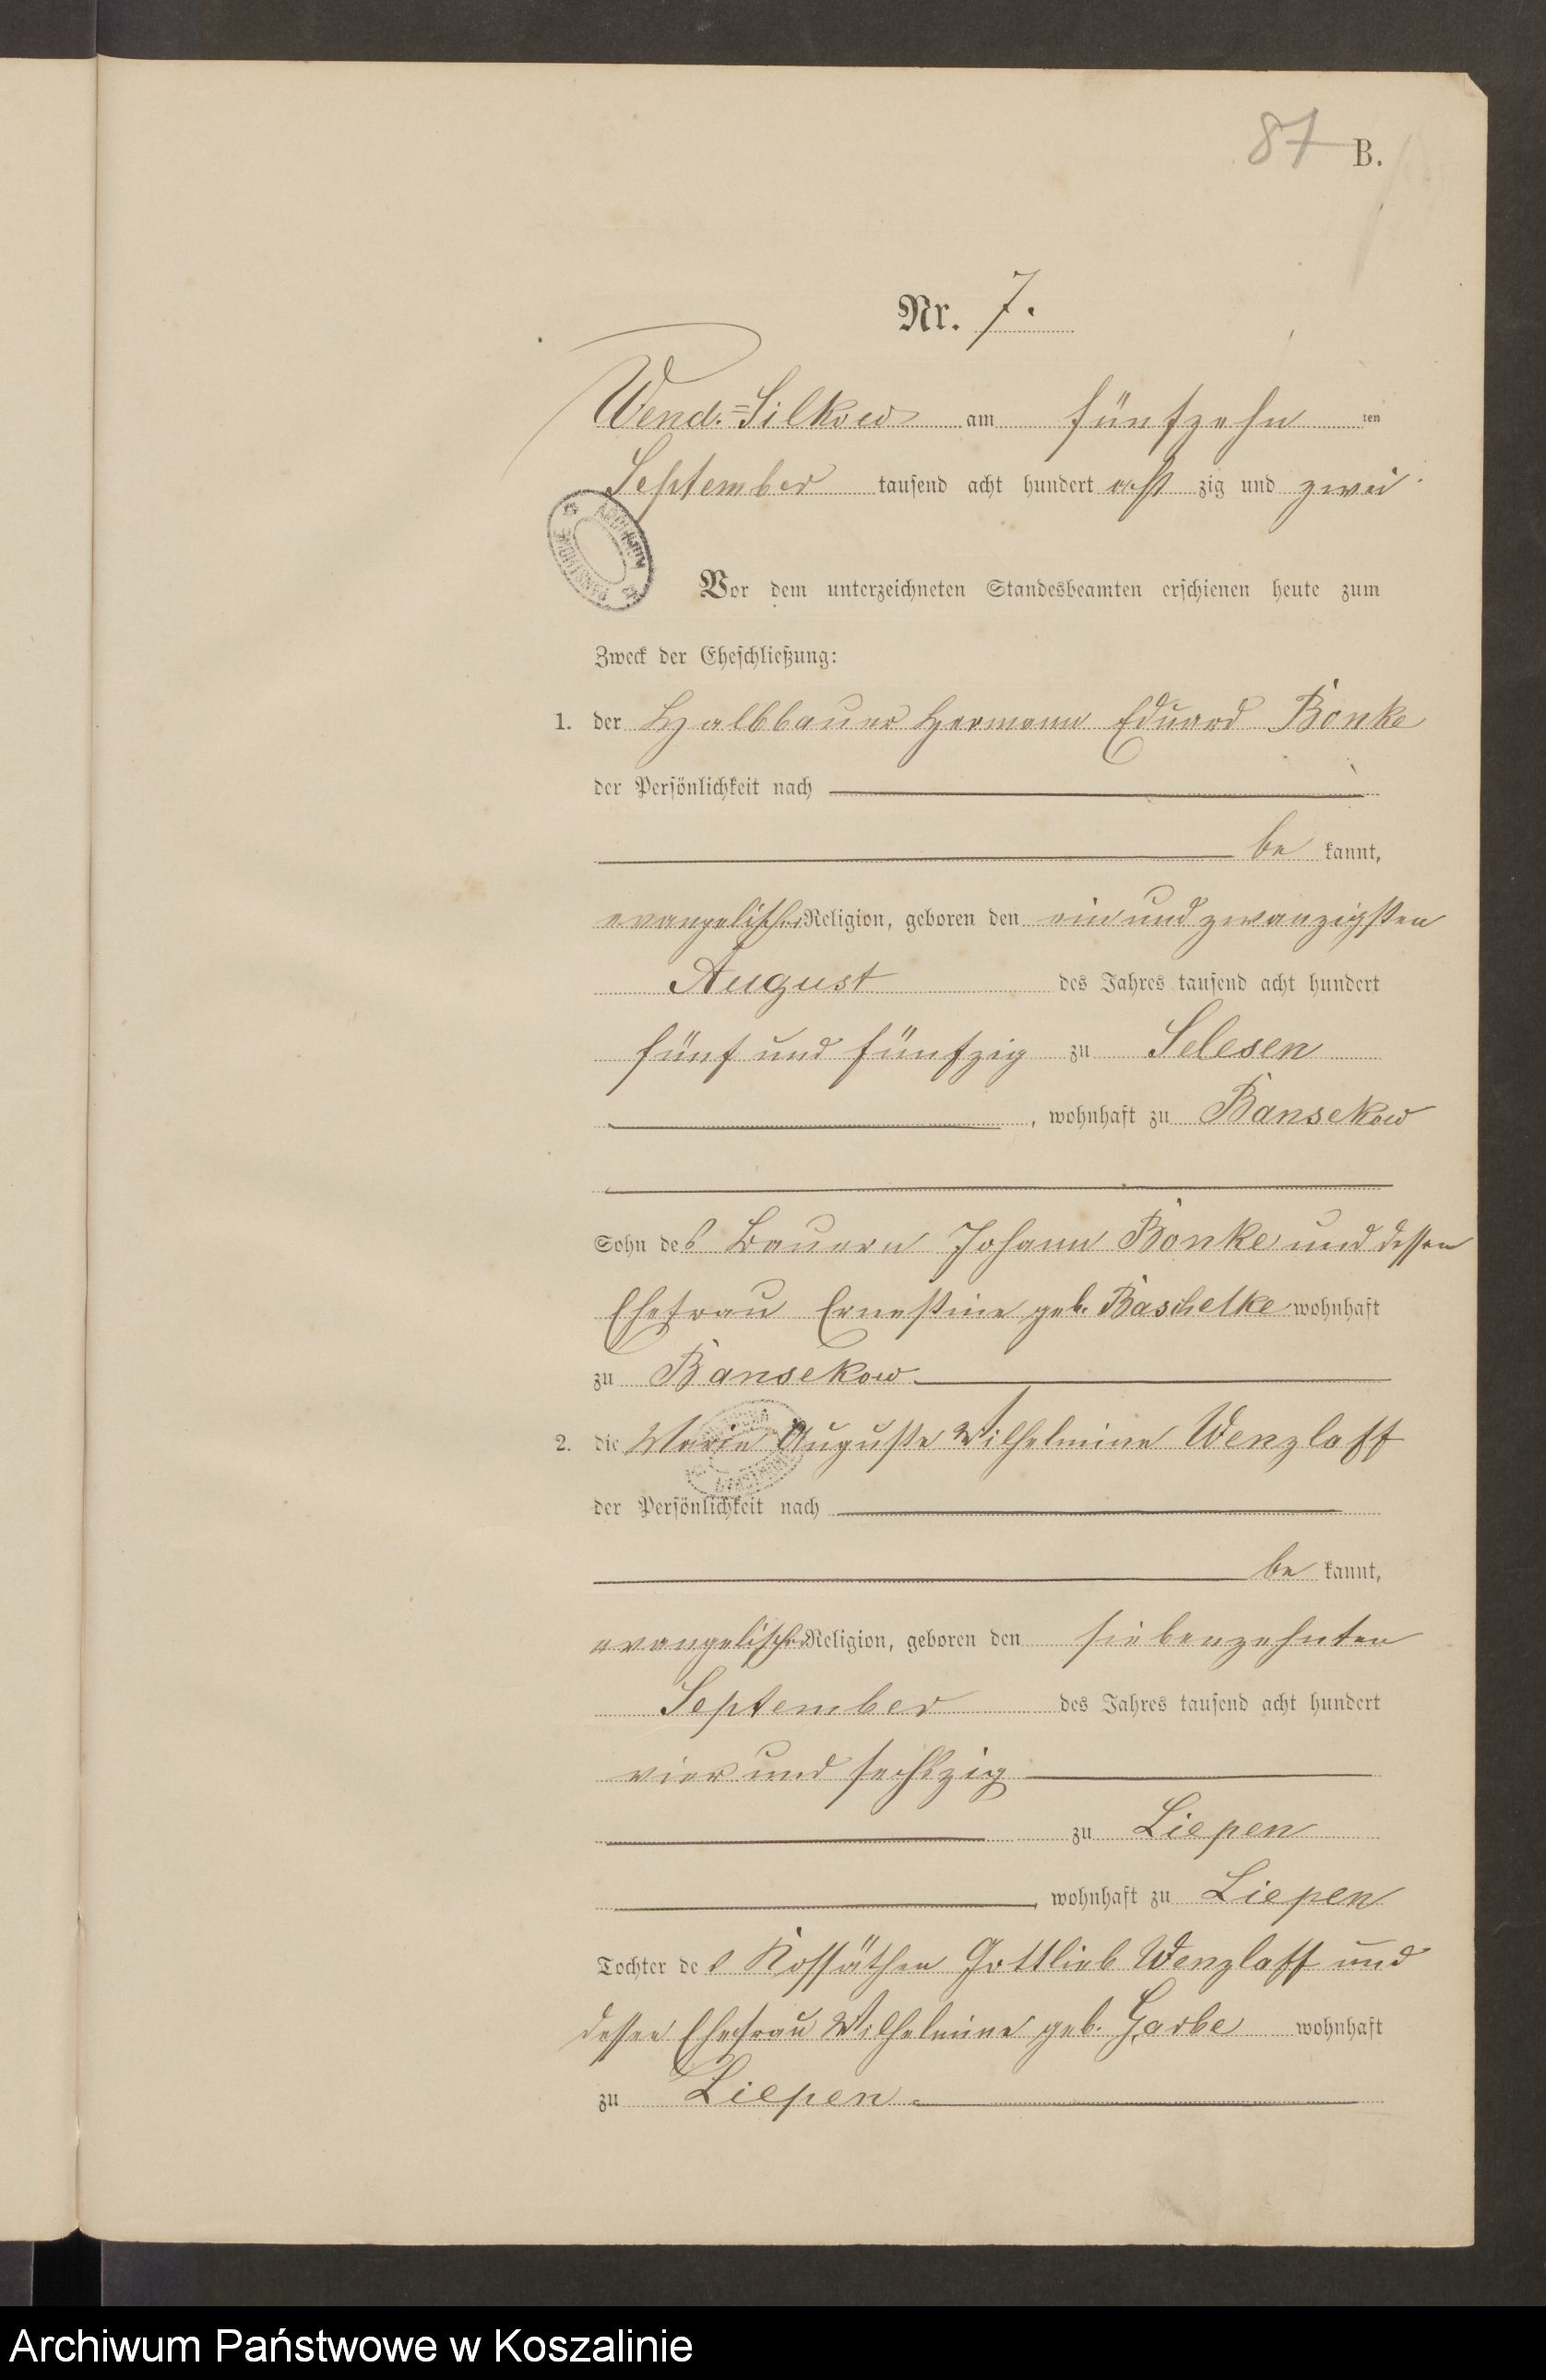 87 B.
Nr. 7.
Wend.=Silkow am fünfzehn ten
September tausend acht hundert acht zig und zwei
Vor dem unterzeichneten Standesbeamten erschienen heute zum
Zweck der Eheschließung:
1. der Halbbauer Hermann Eduard Bonke
der Persönlichkeit nach
be kannt,
evangelischer Religion, geboren den ein und zwanzigsten
August des Jahres tausend acht hundert
fünf und fünfzig zu Selesen
, wohnhaft zu Bansekow
Sohn des Bauern Johann Bonke und dessen
Ehefrau Ernestine geb. Baschelke wohnhaft
zu Bansekow
2. die Marie Auguste Wilhelmine Wenzlaff
der Persönlichkeit nach
be kannt,
evangelischer Religion, geboren den siebenzehnten
September des Jahres tausend acht hundert
vier und sechszig
zu Liepen
, wohnhaft zu Liepen
Tochter des Kossäthen Gottlieb Wenzlaff und
dessen Ehefrau Wilhelmine geb. Garbe wohnhaft
zu Liepen.
Archiwum Państwowe w Koszalinie